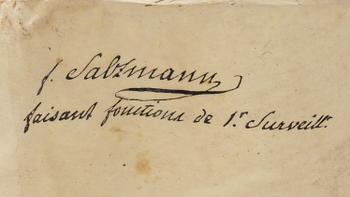 f. Salzmann
faisant fonctions de 1.r Surveill.t